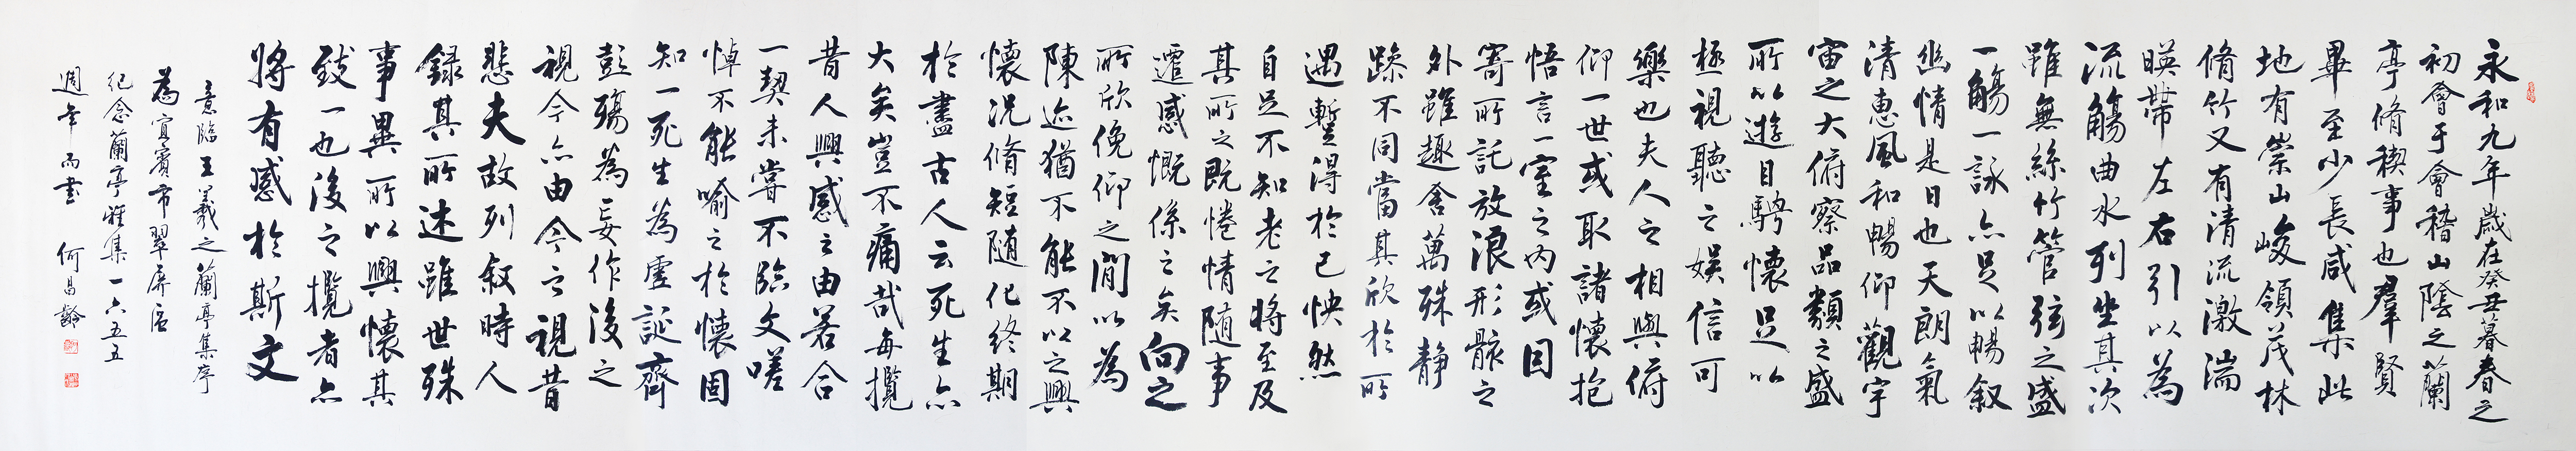 永和九年歲在癸丑暮春之
初會于會稽山陰之蘭
亭脩稧事也羣賢
畢至少長咸集此
地有崇山峻領茂林
脩竹又有清流激湍
暎帶左右引以為
流觴曲水列坐其次
雖無絲竹管弦之盛
一觴一詠亦足以暢叙
幽情是日也天朗氣
清惠風和暢仰觀宇
宙之大俯察品類之盛
所以遊目騁懷足以
極視聽之娛信可
樂也夫人之相與俯
仰一世或取諸懷抱
悟言一室之內或因
寄所託放浪形骸之
外雖趣舍萬殊靜
躁不同當其欣於所
遇蹔得於己怏然
自足不知老之將至及
其所之既惓情隨事
遷感慨係之矣向之
所欣俛仰之間以為
陳迹猶不能不以之興
懷況脩短隨化終期
於盡古人云死生亦
大矣豈不痛哉每攬
昔人興感之由若合
一契未嘗不臨文嗟
悼不能喻之於懷固
知一死生為虛誕齊
彭殤為妄作後之
視今亦由今之視昔
悲夫故列叙時人
錄其所述雖世殊
事異所以興懷其
致一也後之攬者亦
將有感於斯文
意臨王羲之蘭亭集序
為宜賓市翠屏區
紀念蘭亭雅集一六五五
週年而書 何昌齡